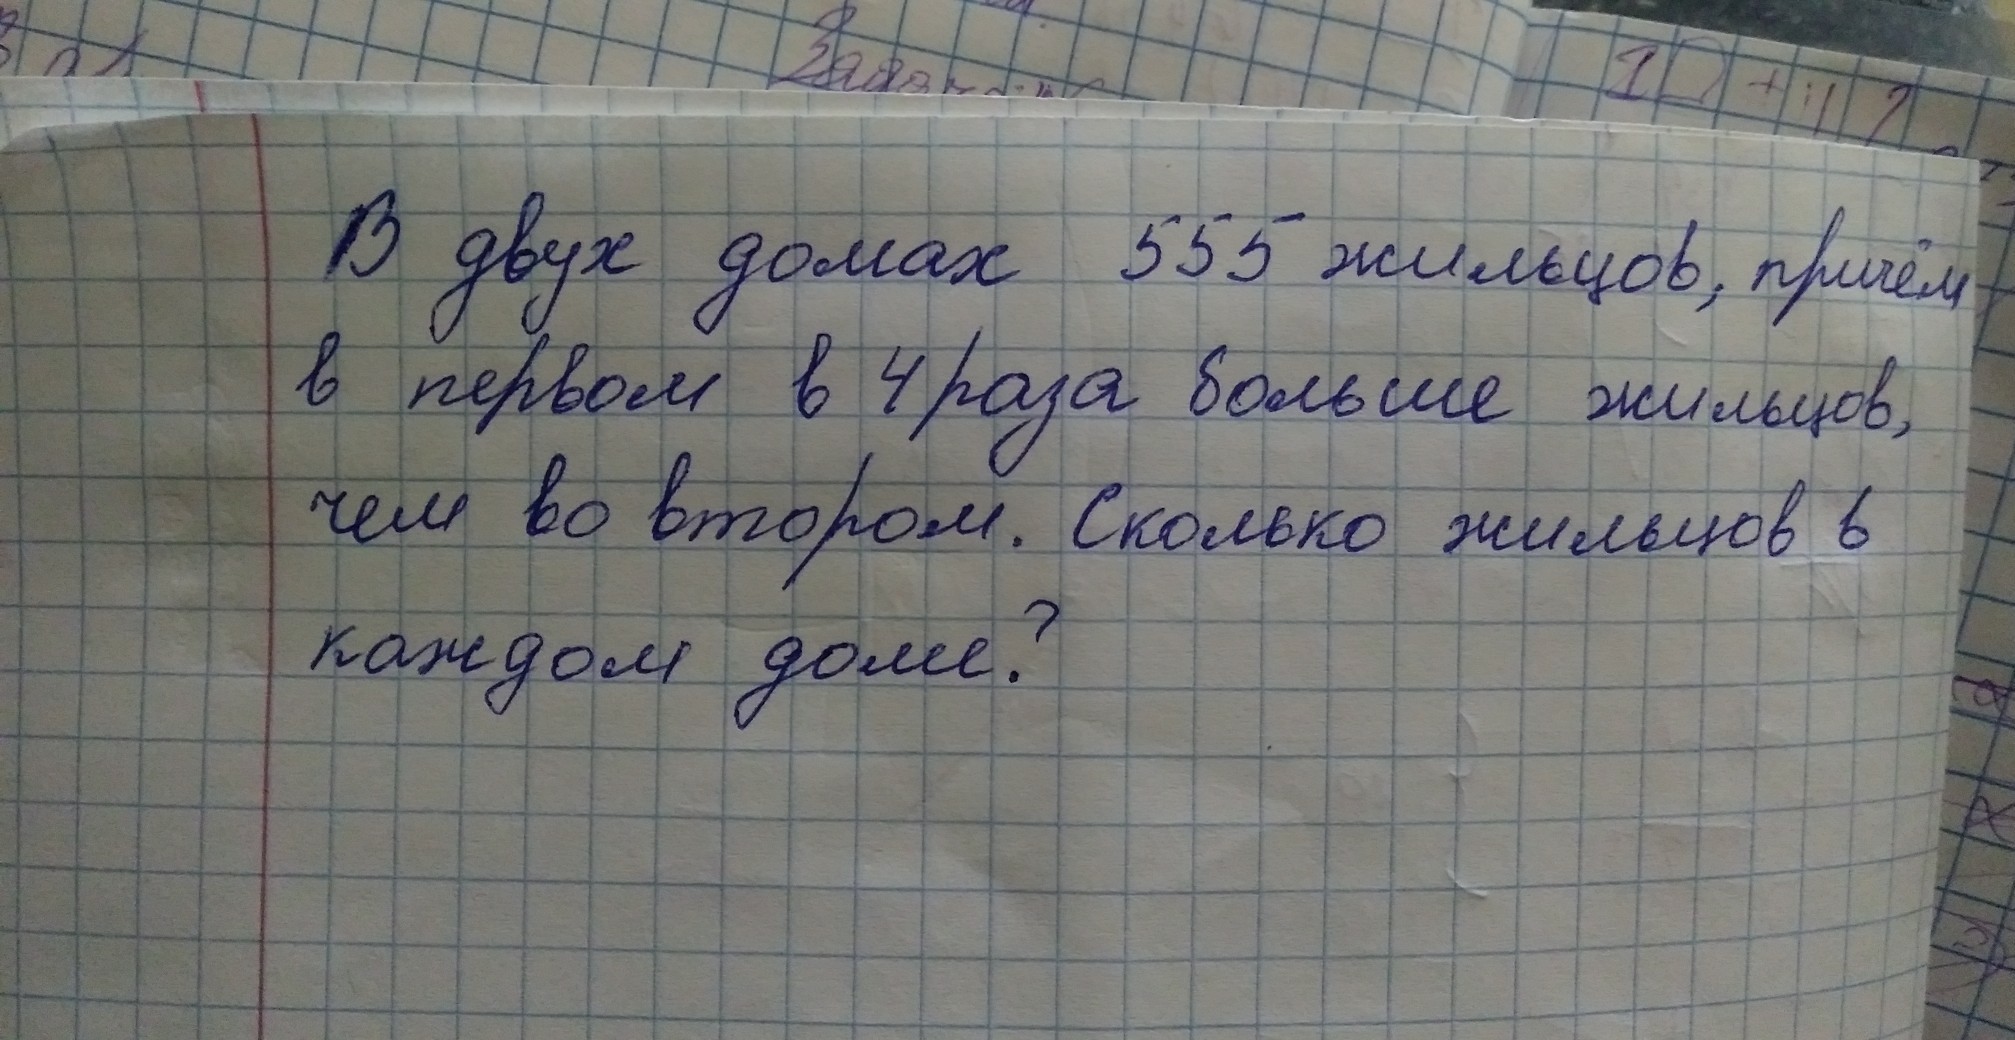 В двух домах 555 жильцов, причём
в первом в 4 раза больше жильцов,
чем во втором. Сколько жильцов в
каждом доме?